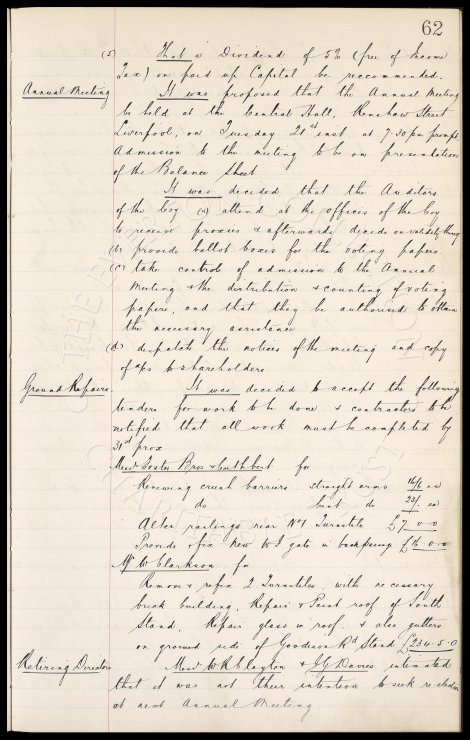 62
(5) That a Dividend of 5% (free of Income
Tax) on paid up Capital be recommended.
Annual Meeting It was proposed that the Annual Meeting
be held at the Central Hall, Renshaw Street
Liverpool, on Tuesday 21st inst at 7.30 pm prompt
Admission to the meeting to be on presentation
of the Balance Sheet
It was decided that the Auditors
of the Coy (a) attend at the offices of the Coy
to receive proxies & afterwards decide on validity thereof
(b) provide ballot boxes for the voting papers
(c) take control of admission to the Annual
Meeting & the distribution & counting of voting
papers, and that they be authorised to obtain
the necessary assistance
(d) despatch the notices of the meeting and copy
of a/cs to shareholders.
Ground Repairs It was decided to accept the following
tenders for work to be done & contractors to be
notified that all work must be completed by
31st prox.
Messrs Foster Bros & Cuthbert for
Renewing crush barriers straight arms 16/6 ea
do bent do 23/ ea
Alter railings near No 1 Turnstile £7-0-0
Provide & fix new W I gate in back £-0-0
Mr W Clarkson for
Remove & refix 2 Turnstiles, with necessary
brick building, Repair & Paint roof of South
Stand. Repair glass in roof & also gutters
on ground side of Goodison Rd Stand £234-5-0
Retiring Directors Messrs W R Clayton & J G Davies intimated
that it was not their intention to seek re election
at next Annual Meeting